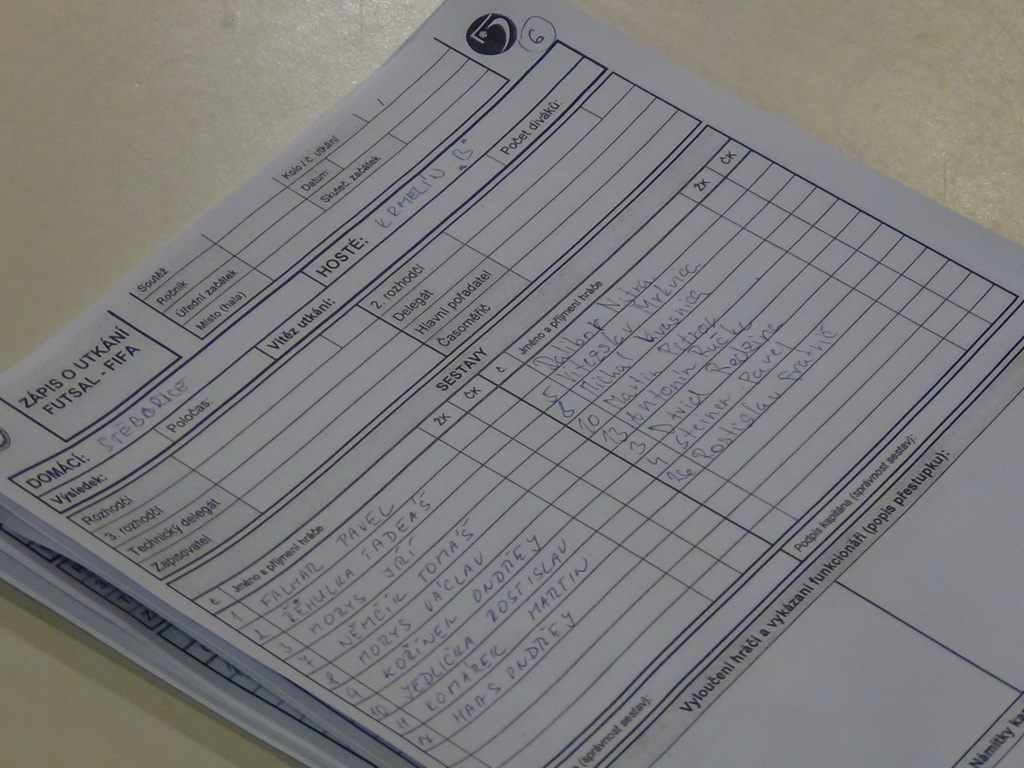 6
ZÁPIS O UTKÁNÍ
FUTSAL - FIFA
Soutěž
Ročník
Úřední začátek
Místo (hala)
Kolo / č. utkání
Datum:
Skuteč. začátek
DOMÁCI: ŠTĚBOŘICE
HOSTÉ: KRMELÍN "B"
Výsledek:
Poločas:
Vítěz utkání:
Počet diváků:
Rozhodčí
3. rozhodčí
Technický delegát
Zapisovatel
2. rozhodčí
Delegát
Hlavní pořadatel
Časoměřič
SESTAVY
č. Jméno a příjmení hráče ŽK ČK
1 FALHAR PAVEL
2 ŘEHULKA TADEÁŠ
3 MORYS JIŘÍ
7 NĚMČÍK TOMÁŠ
8 MORYS VÁCLAV
9 KOŘÍNEK ONDŘEJ
10 JEDLIČKA ROSTISLAV
11 KOMÁREK MARTIN
HAAS ONDŘEJ
č. Jméno a příjmení hráče ŽK ČK
Dalibor Nitra
5 Vítězslav Mravec
8 Michal Kvasnica
10 Matla Petr
13 Antonín
3 David
4 Pavel
16 Rostislav
(správnost sestav):
Podpis kapitána (správnost sestav):
Vyloučení hráči a vykázaní funkcionáři (popis přestupku):
Námitky